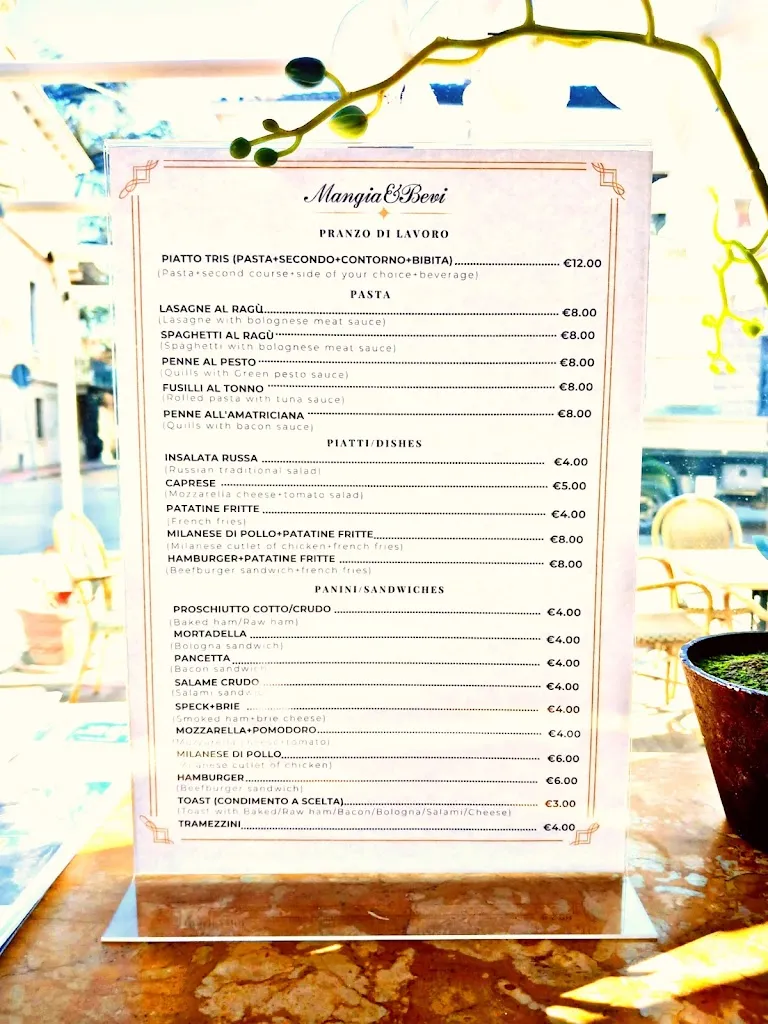 Mangia&Bevi
PRANZO DI LAVORO
PIATTO TRIS (PASTA+SECONDO+CONTORNO+BIBITA) €12.00
(Pasta+second course+side of your choice+beverage)
PASTA
LASAGNE AL RAGÙ €8.00
(Lasagne with bolognese meat sauce)
SPAGHETTI AL RAGÙ €8.00
(Spaghetti with bolognese meat sauce)
PENNE AL PESTO €8.00
(Quills with Green pesto sauce)
FUSILLI AL TONNO €8.00
(Rolled pasta with tuna sauce)
PENNE ALL'AMATRICIANA €8.00
(Quills with bacon sauce)
PIATTI/DISHES
INSALATA RUSSA €4.00
(Russian traditional salad)
CAPRESE €5.00
(Mozzarella cheese+tomato salad)
PATATINE FRITTE €4.00
(French fries)
MILANESE DI POLLO+PATATINE FRITTE €8.00
(Milanese cutlet of chicken+french fries)
HAMBURGER+PATATINE FRITTE €8.00
(Beefburger sandwich+french fries)
PANINI/SANDWICHES
PROSCHIUTTO COTTO/CRUDO €4.00
(Baked ham/Raw ham)
MORTADELLA €4.00
(Bologna sandwich)
PANCETTA €4.00
(Bacon sandwich
SALAME CRUDO €4.00
(Salami sandwic
SPECK+BRIE €4.00
(Smoked ham+brie cheese)
MOZZARELLA+POMODORO €4.00
(Mozzarella cheese+tomato)
MILANESE DI POLLO €6.00
(Milanese cutlet of chicken)
HAMBURGER €6.00
(Beefburger sandwich)
TOAST (CONDIMENTO A SCELTA) €3.00
(Toast with Baked/Raw ham/Bacon/Bologna/Salami/Cheese)
TRAMEZZINI €4.00